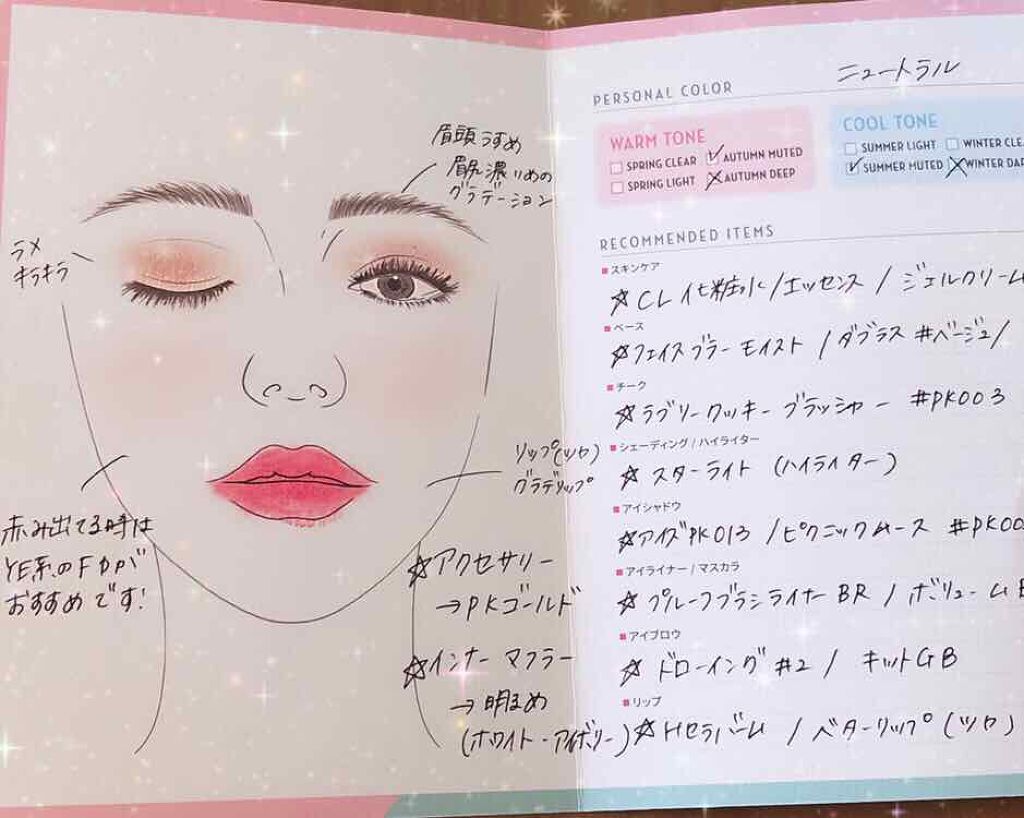 眉頭うすめ
眉尻濃いめの
グラデーション
ラメ
キラキラ
リップ(ツヤ)
グラデリップ
赤み出てる時は
YE系のFDが
おすすめです!
☆アクセサリー
→PKゴールド
☆インナー マフラー
→明るめ
(ホワイト-アイボリー)
ニュートラル
PERSONAL COLOR
WARM TONE
SPRING CLEAR AUTUMN MUTED
SPRING LIGHT AUTUMN DEEP
COOL TONE
SUMMER LIGHT WINTER
SUMMER MUTED WINTER
RECOMMENDED ITEMS
スキンケア
☆CL化粧水/エッセンス / ジェルクリーム
ベース
☆フェイスブラー モイスト / ダブラス #ベージュ/
チーク
☆ラブリークッキー ブラッシャー #PK003
シェーディング / ハイライター
☆スターライト (ハイライター)
アイシャドウ
☆アイズPK013 /ピクニックムース #PK00
アイライナー / マスカラ
☆プルーフブラシライナーBR / ボリューム
アイブロウ
☆ドローイング#2 / キットGB
リップ
☆Hセラバーム / ベターリップ(ツヤ)